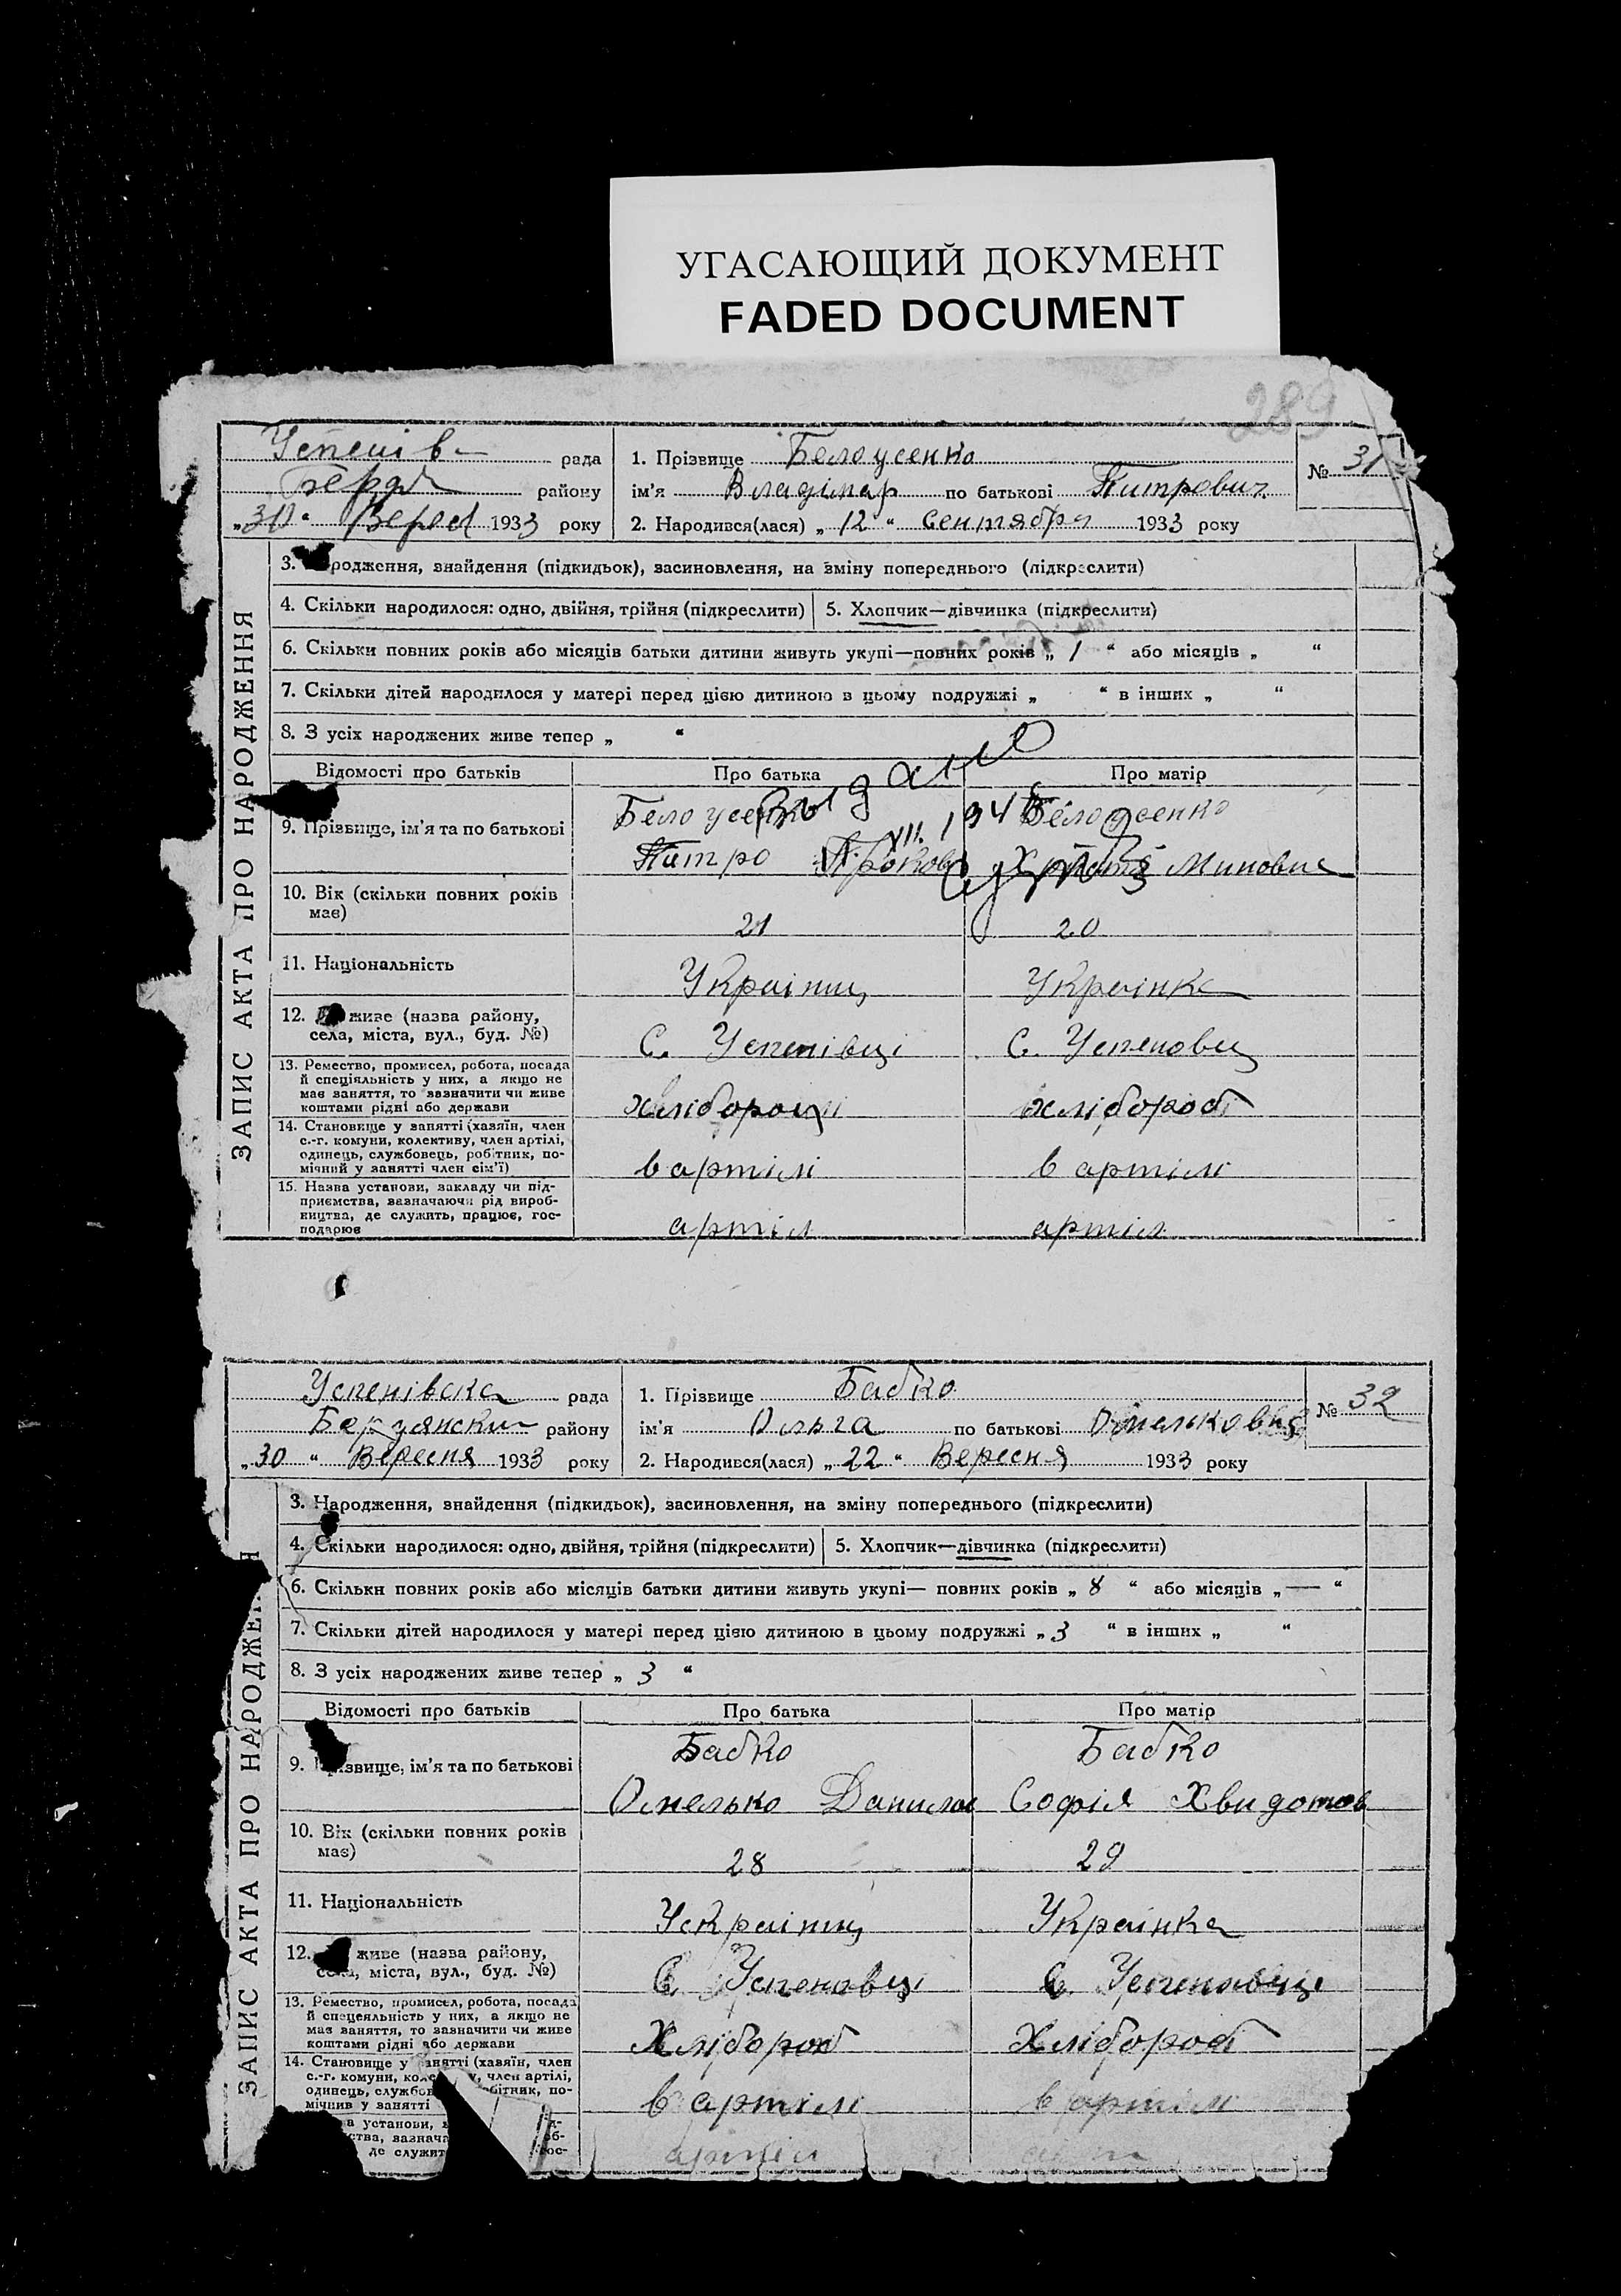 УГАСАЮЩИЙ ДОКУМЕНТ
FADED DOCUMENT
289
Успенів рада
Бердян району
„30“ Верес 1933 року
1. Прізвище Белоусенко
ім'я Владімар по батькові Питревич
2. Народився(лася) „12“ Сентября 1933 року
№ 31
ЗАПИС АКТА ПРО НАРОДЖЕННЯ
3. родження, знайдення (підкидьок), засиновлення, на зміну попереднього (підкреслити)
4. Скільки народилося: одно, двійня, трійня (підкреслити) 5. Хлопчик—дівчинка (підкреслити)
6. Скільки повних років або місяців батьки дитини живуть укупі—повних років „1“ або місяців „ “
7. Скільки дітей народилося у матері перед цією дитиною в цьому подружжі „ “ в інших „ “
8. З усіх народжених живе тепер „ “
Відомості про батьків Про батька Про матір
9. Прізвище, ім'я та по батькові Белоусенко Белоусенко
Питро Миновна
VII. 194
10. Вік (скільки повних років
має) 21 20
11. Національність Українц Українка
12. живе (назва району,
села, міста, вул., буд. №) С. Успенівці С. Успеновц
13. Ремество, промисел, робота, посада
й спеціяльність у них, а якщо не
має заняття, то зазначити чи живе
коштами рідні або держави хлібороц хлібороб
14. Становище у занятті (хазяїн, член
с.-г. комуни, колективу, член артілі,
одинець, службовець, робітник, по-
мічний у занятті член сім'ї) в артілі в артілі
15. Назва установи, закладу чи під-
приємства, зазначаючи рід вироб-
ництва, де служить, працює, гос-
подарює артіл артіл
Успенівска рада
Бердянски району
„30“ Вересня 1933 року
1. Прізвище Бабко
ім'я Ольга по батькові Омельковна
2. Народився(лася) „22“ Вересня 1933 року
№ 32
ЗАПИС АКТА ПРО НАРОДЖЕН
3. Народження, знайдення (підкидьок), засиновлення, на зміну попереднього (підкреслити)
4. Скільки народилося: одно, двійня, трійня (підкреслити) 5. Хлопчик—дівчинка (підкреслити)
6. Скільки повних років або місяців батьки дитини живуть укупі— повних років „8“ або місяців „—“
7. Скільки дітей народилося у матері перед цією дитиною в цьому подружжі „3“ в інших „ “
8. З усіх народжених живе тепер „3“
Відомості про батьків Про батька Про матір
9. Прізвище, ім'я та по батькові Бабко Бабко
Омелько Данилов Софія Хвидотов
10. Вік (скільки повних років
має) 28 29
11. Національність Українц Українка
12. живе (назва району,
села, міста, вул., буд. №) С. Успеновці С. Успеновці
13. Ремество, промисел, робота, посада
й спецеяльність у них, а якщо не
має заняття, то зазначити чи живе
коштами рідні або держави Хлібороб Хлібороб
14. Становище у занятті (хазяїн, член
с.-г. комуни, член артілі,
одинець, службов бітник, по-
мічнив у занятті в артілі в артілі
установи,
ства, зазнача об-
де служит гос-
артіл